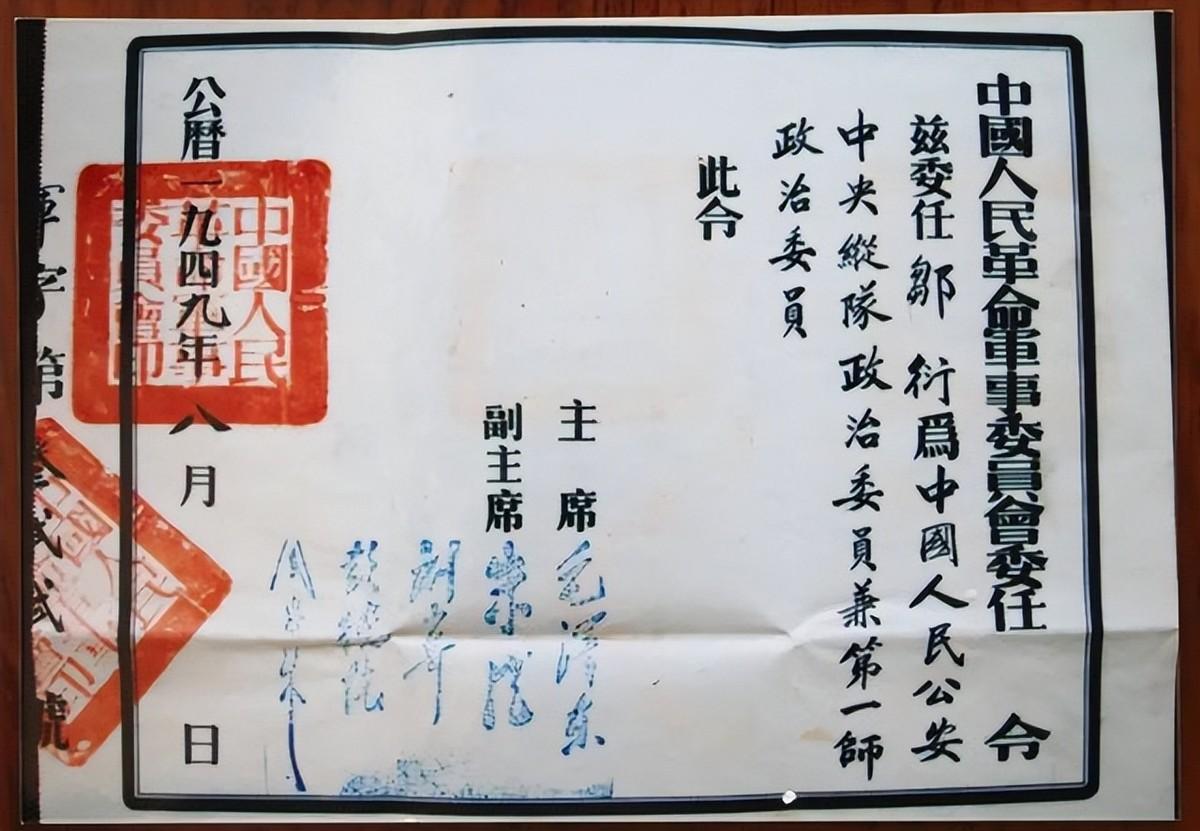 中國人民革命軍事委員會委任令
兹委任鄒衍爲中國人民公安
中央縱隊政治委員兼第一師
政治委員
此令
主席 毛澤東
副主席 朱德
劉少奇
彭德懷
周恩來
公曆一九四九年八月 日
中國人民
革命軍事
委員會印
軍字第
號